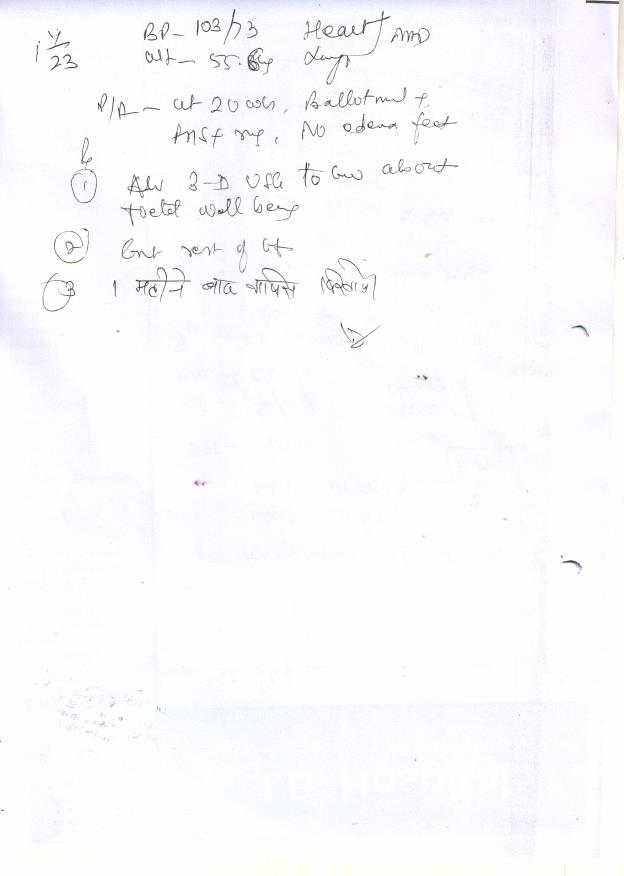 BP- 103/73 Heart
wt- 55.6kg Lungs NAD
23
P/A- ut 20 wks, Ballotment +
FHS+ reg, No edema feet
①  Adv 3-D USG to know about
foetal well being
② Cont rest of t/t
③ 1 महीने बाद वापिस दिखायें